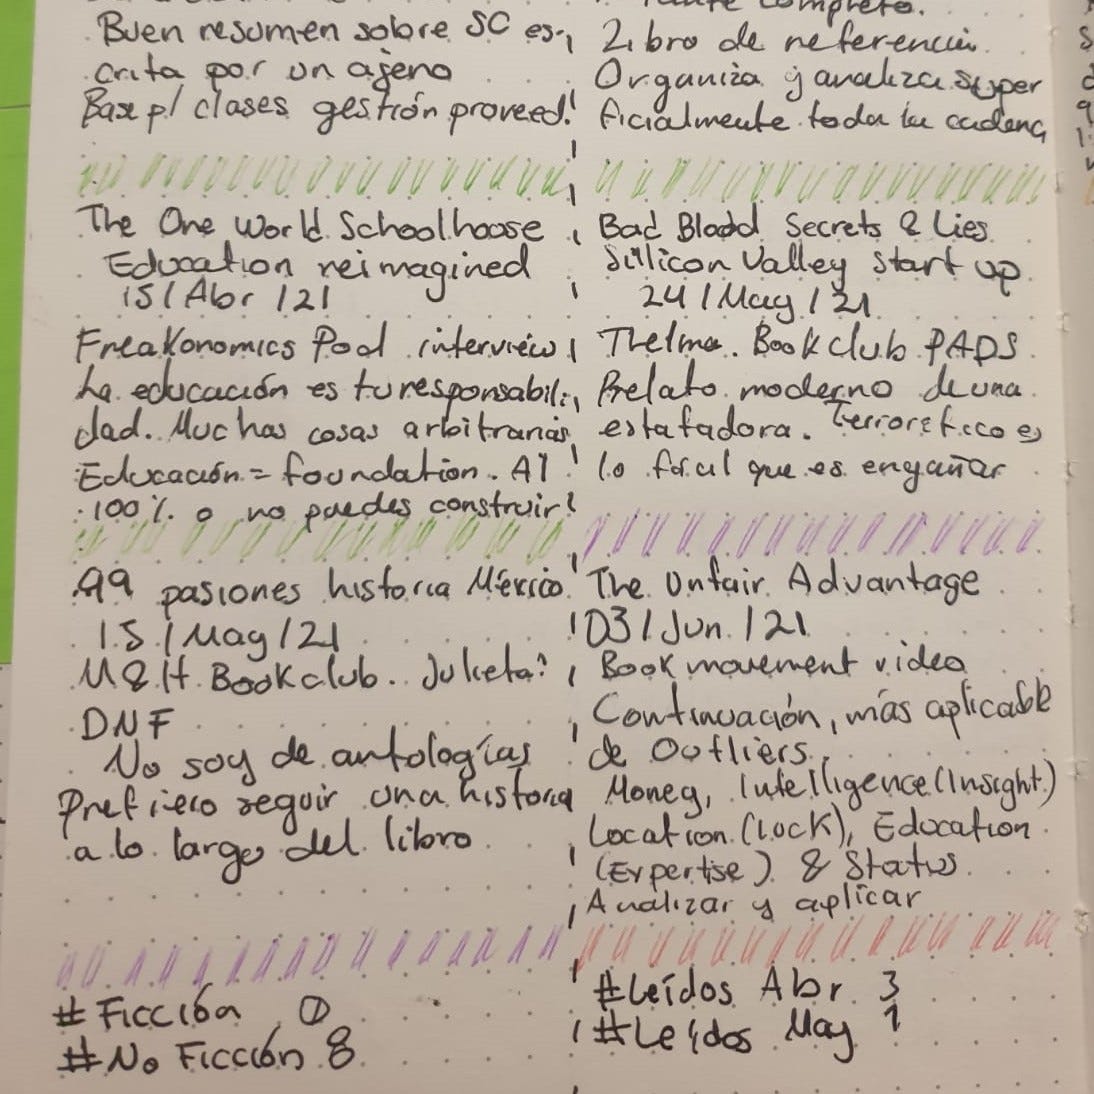 Buen resumen sobre SC es-
crita por un ajeno
Base p/ clases gestión proveed.
completo.
Libro de referencia
Organiza y analiza super
ficialmente toda la cadena
The One World Schoolhoose
Education reimagined
15/Abr/21
Freakonomics Pod interview
La educación es tu responsabili
dad. Muchas cosas arbitrarias
Educación = foundation. Al
100% o no puedes construir
Bad Blood Secrets & Lies
Sillicon Valley start up
24/May/21
Thelma. Bookclub PADS
Relato moderno de una
estafadora. Terrorífico es
lo fácil que es engañar
99 pasiones historia México
15/May/21
M&H Bookclub. Julieta?
DNF
No soy de antologías
Prefiero seguir una historia
a lo largo del libro
The Unfair Advantage
03/Jun/21
Book movement video
Continuación, más aplicable
de Outliers.
Money, Intelligence (Insight)
Location (Luck), Education
(Expertise) & Status
Analizar y aplicar
#Ficción 0
#No Ficción 8
#Leídos Abr 3
#Leídos May 1